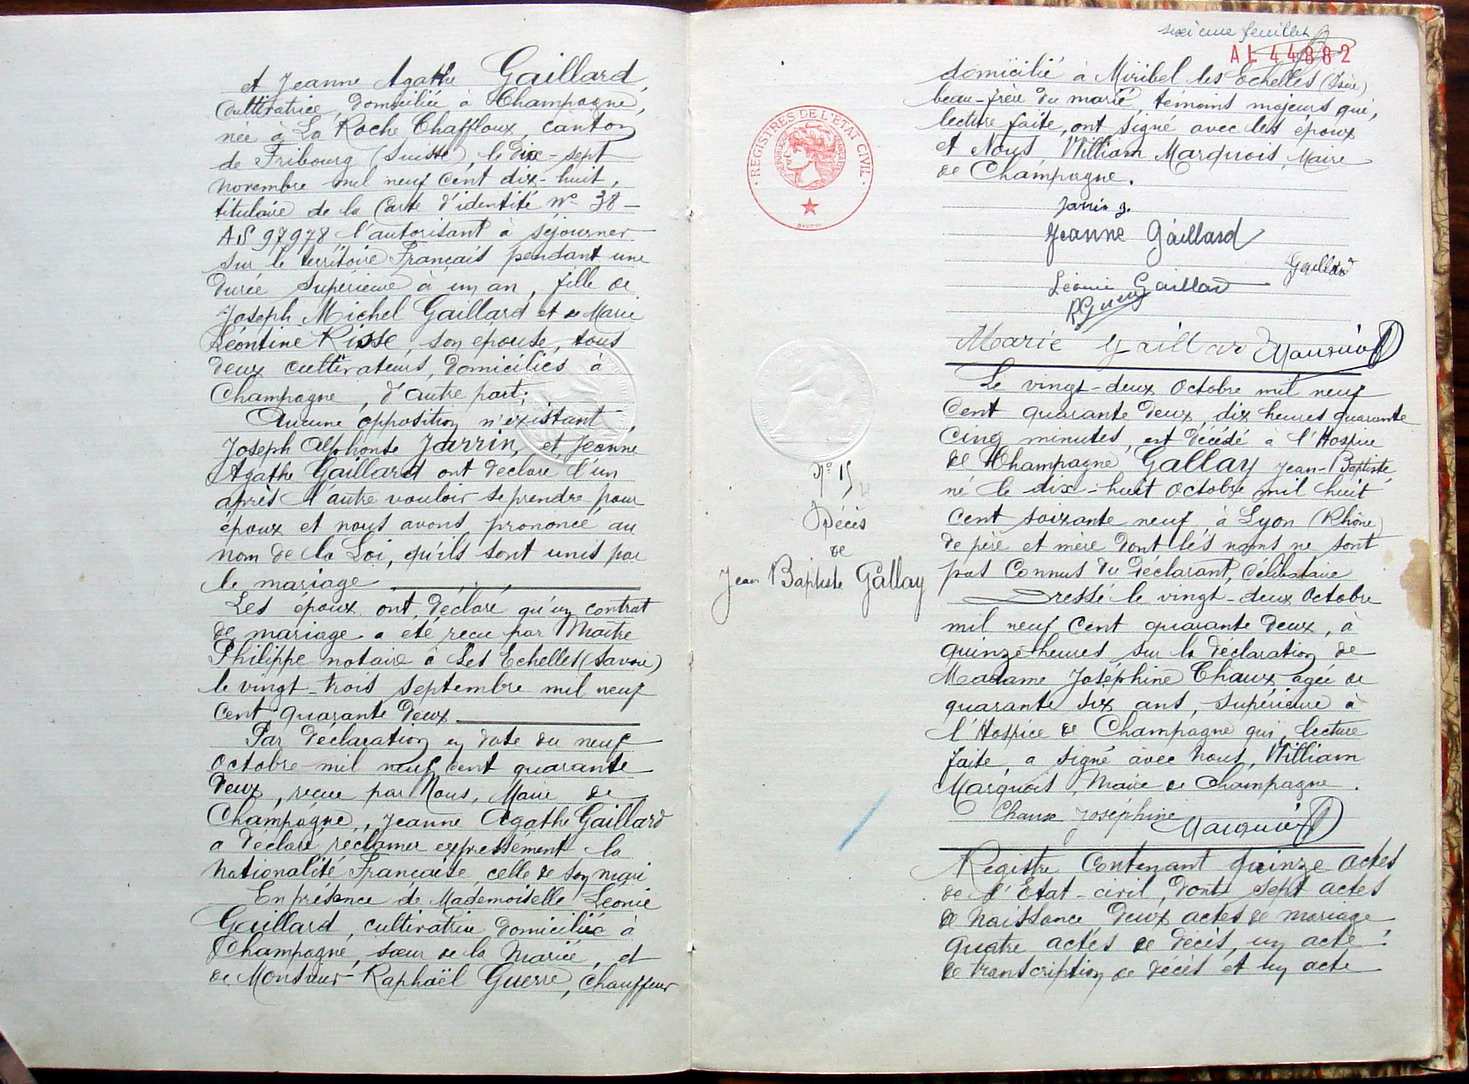 et Jeanne Agathe Gaillard,
cultivatrice, domiciliée à Champagne,
née à La Roche Chaffloux, canton
de Fribourg (Suisse), le dix-sept
novembre mil neuf cent dix-huit,
titulaire de la Carte d'identité N° 38-
AS 97978 l'autorisant à séjourner
sur le territoire Français pendant une
durée supérieure à un an, fille de
Joseph Michel Gaillard et de Marie
Léontine Risse, son épouse, tous
deux cultivateurs, domiciliés à
Champagne, d'autre part.
Aucune opposition n'existant
Joseph Alphonse Jarrin, et Jeanne
Agathe Gaillard ont déclaré l'un
après l'autre vouloir se prendre pour
époux et nous avons prononcé au
nom de la Loi, qu'ils sont unis par
le mariage
Les époux ont déclaré qu'un contrat
de mariage a été reçu par Maître
Philippe notaire à Les Echelles (Savoie)
le vingt-trois septembre mil neuf
cent quarante deux
Par déclaration en date du neuf
octobre mil neuf cent quarante
deux, reçue par Nous, Maire de
Champagne, Jeanne Agathe Gaillard
a déclaré réclamer expressément la
nationalité Française, celle de son mari
En présence de Mademoiselle Léonie
Gaillard, cultivatrice domiciliée à
Champagne, sœur de la Mariée, et
de Monsieur Raphaël Guerre, chauffeur
sixième feuillet
AL 44882
domicilié à Miribel les Echelles (Isère)
beau-frère du marié, témoins majeurs qui,
lecture faite, ont signé avec les époux
et Nous William Marquois, Maire
de Champagne.
REGISTRES DE L'ETAT CIVIL
Jarrin J.
Jeanne Gaillard
Gaillard
Léonie Gaillard
R Guerre
Marie Gaillard Marquois
N° 15
Décès
de
Jean Baptiste Gallay
Le vingt-deux Octobre mil neuf
cent quarante deux, dix heures quarante
cinq minutes, est décédé a l'Hospice
de Champagne Gallay Jean-Baptiste
né le dix-huit Octobre mil huit
cent soixante neuf, à Lyon (Rhône)
de père et mère dont les noms ne sont
pas connus du déclarant, célibataire
Dressé le vingt-deux Octobre
mil neuf cent quarante deux, à
quinze heures, sur la déclaration de
Madame Joséphine Chaux agée de
quarante six ans, supérieure à
l'Hospice de Champagne qui, lecture
faite a signé avec nous, William
Marquois Maire de Champagne.
Chaux Joséphine Marquois
Registre contenant quinze actes
de l'Etat-civil, dont sept actes
de naissance deux actes de mariage
quatre actes de décès, un acte
de transcription de décès et un acte